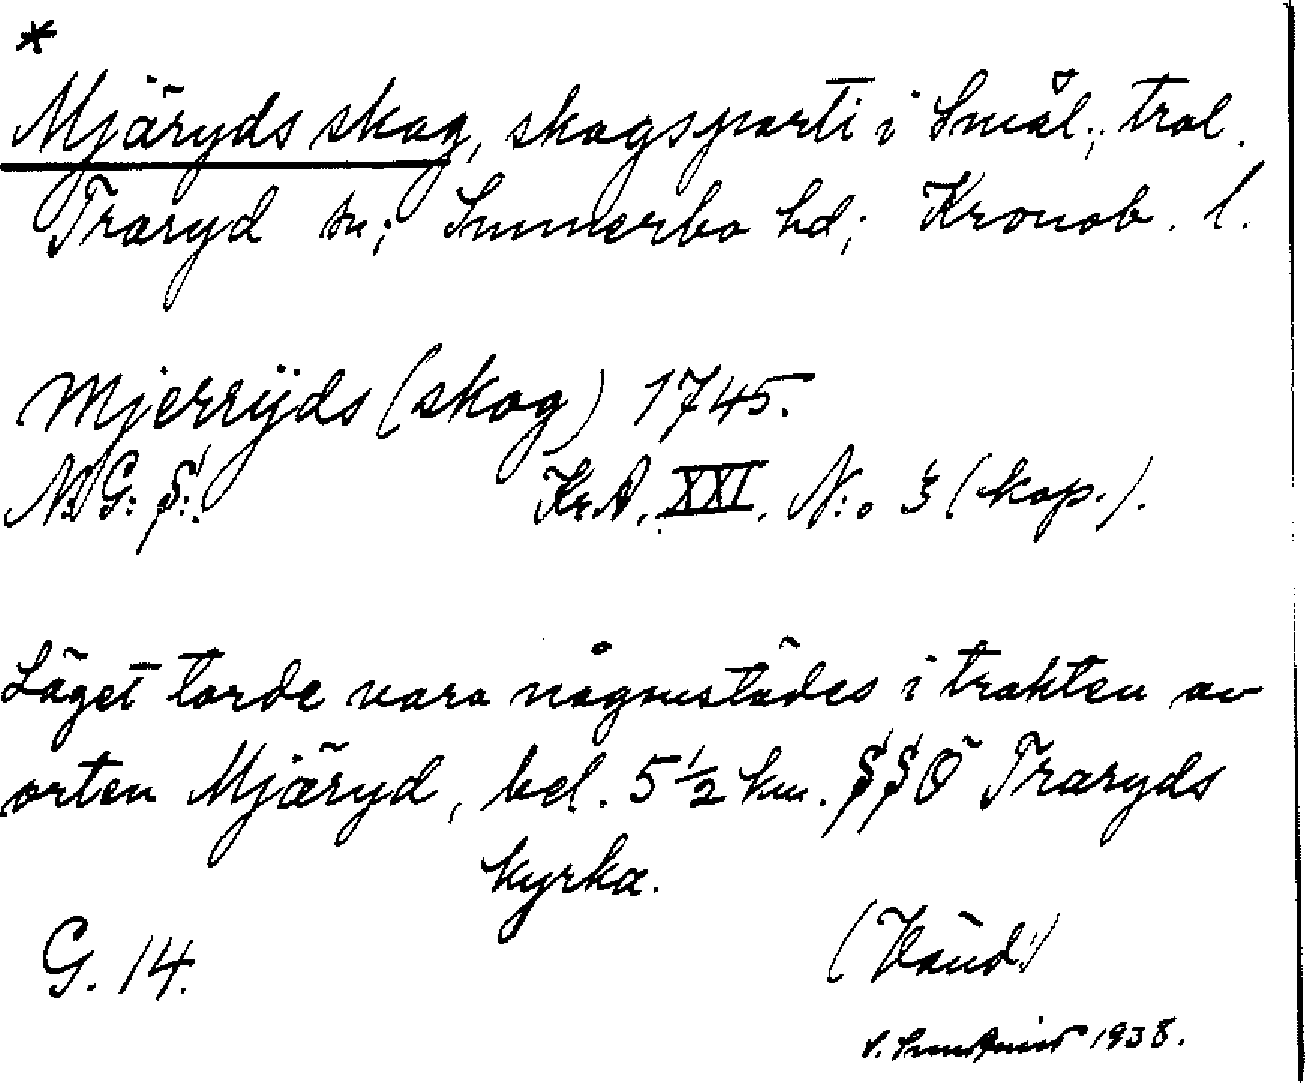 *
Mjäryds skog, skogsparti i Smål.; trol.
Traryd sn; Sunnerbo hd; Kronob. l.
Mjerrÿds (skog) 1745.
N:G: S:. Kr.A. XXI. N:o 3 (kop.).
Läget torde vara någonstädes i trakten av
orten Mjäryd, bel. 5 1/2 km. SSÖ Traryds
kyrka.
G. 14.
1938.